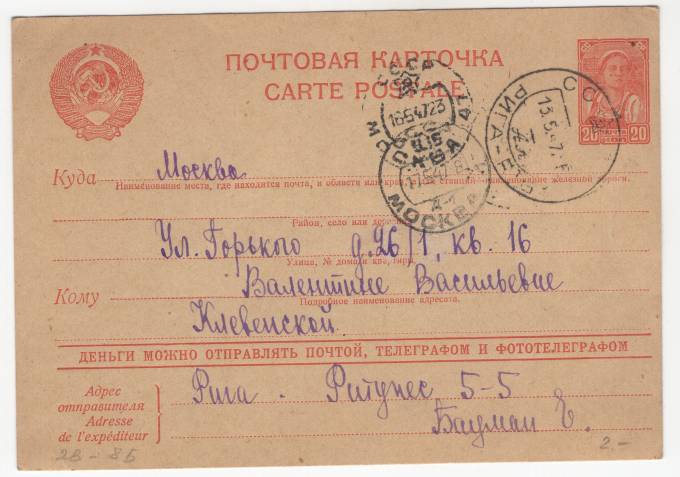 ПОЧТОВАЯ КАРТОЧКА
CARTE POSTALE
СССР
16 5 47 23
МОСКВА
17 5 47
МОСКВА
РИГА
20 20
Куда Москва
Наименование места, где находится почта, и области или края, для станций наименование железной дороги.
Район, село или деревня
Ул. Горького д. 26/1, кв. 16
Улица, № дома и квартиры.
Кому Валентине Васильевне
Подробное наименование адресата.
Клевенской
ДЕНЬГИ МОЖНО ОТПРАВЛЯТЬ ПОЧТОЙ, ТЕЛЕГРАФОМ И ФОТОТЕЛЕГРАФОМ
Адрес
отправителя
Adresse
de l'expéditeur
Рига. 5-5
Бауман
2.-